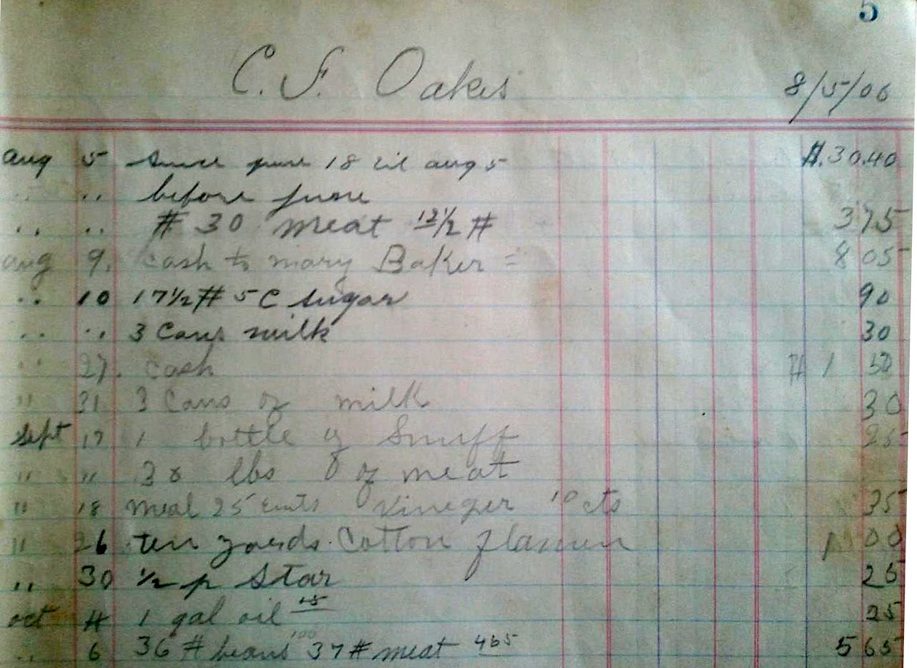 5
C. F. Oakes 8/5/06
aug 5 Since June 18 til aug 5 $.30.40
" " before June
" " # 30 meat 12½ # 3 75
aug 9. Cash to mary Baker = 8 05
" 10 17½ # 5 C Sugar 90
" " 3 Cans milk 30
" 27. Cash 1 50
" 31 3 Cans of milk 30
Sept 17 1 bottle of Snuff 25
" " 30 lbs of meat
" 18 meal 25 cents Vineger 10 cts 35
" 26 ten yards Cotton 1 00
" 30 ½ p Star 25
oct 4 1 gal oil 15 25
" 6 36 # beans 100 37 # meat 465 5 65